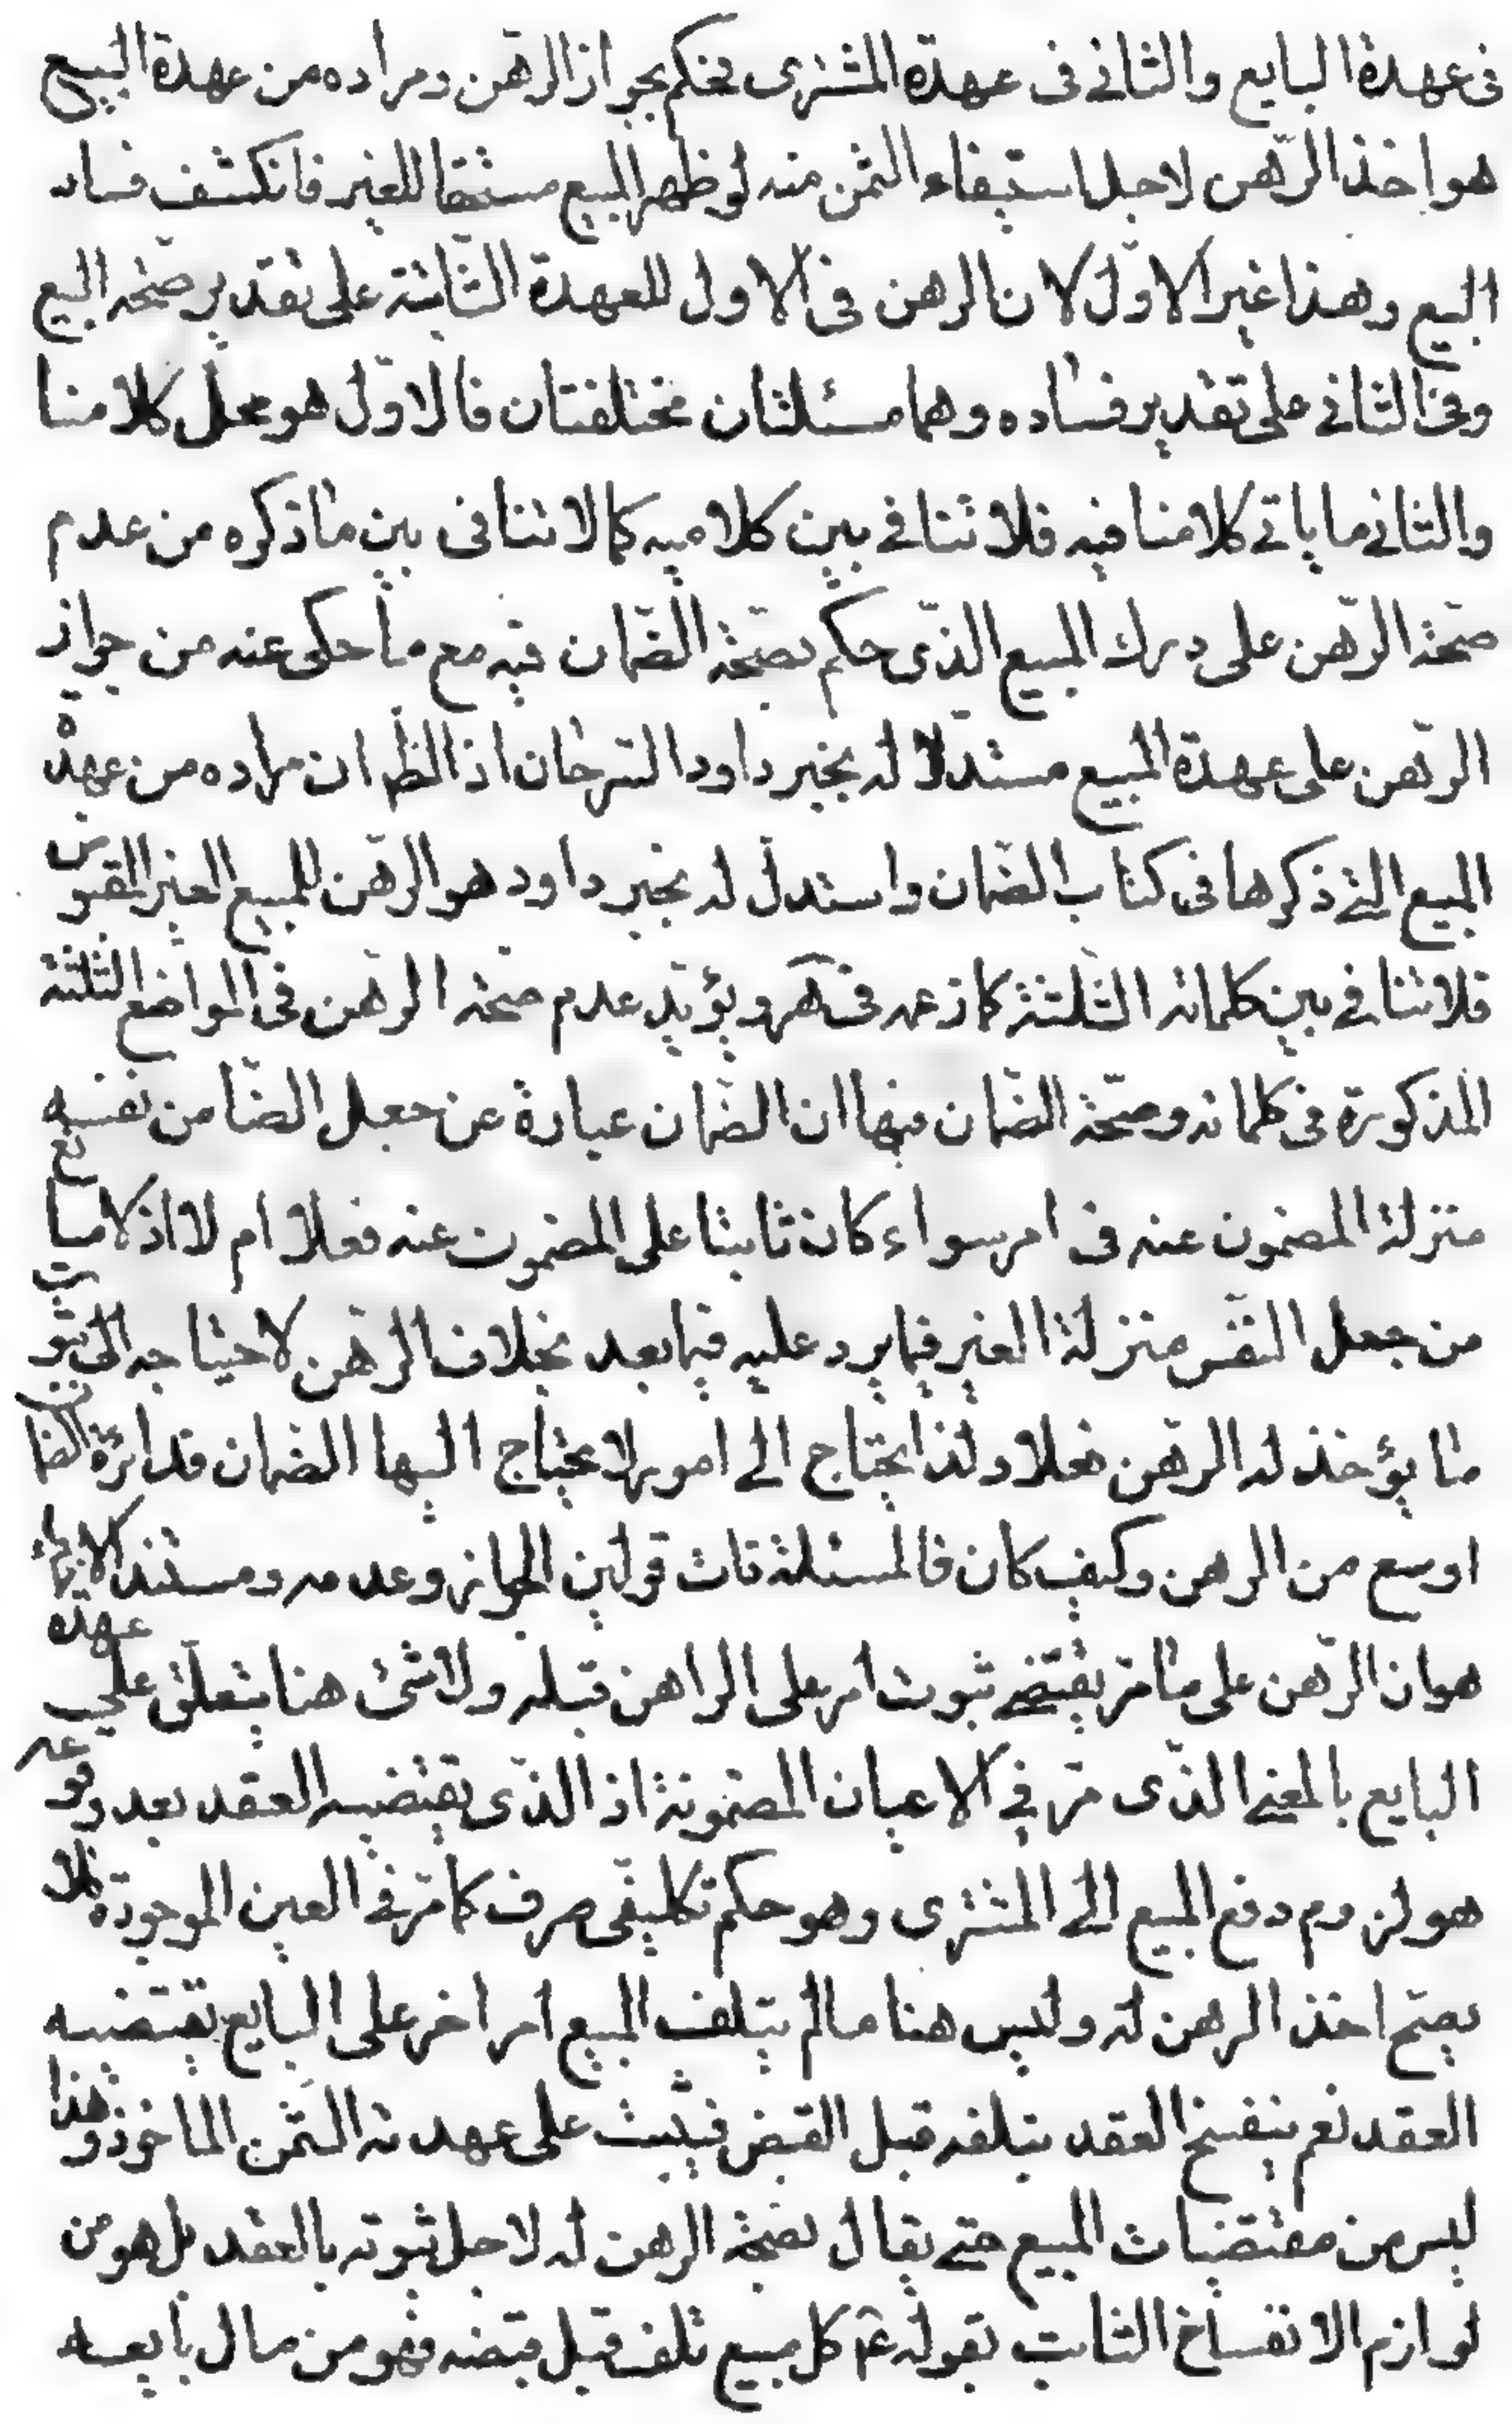 فى عهدة البايع والثانى فى عهدة المشترى فحكم بجواز الرهن ومراده من عهدة البيع
هو اخذ الرّهن لاجل استيفاء الثمن منه لو ظهر المبيع مستحقا للغير فانكشف فساد
البيع وهذا غير الاوّل لان الرهن فى الاول للعهدة الثّابتة على تقدير صحّة البيع
وفى الثانى على تقدير فساده وهما مسئلتان مختلفتان فالاوّل هو محل كلامنا
والثانى ما ياتى كلامنا فيه فلا تنافى بين كلاميه كما لا تنافى بين ما ذكره من عدم
صحّة الرّهن على درك المبيع الذّى حكم بصحّة الضّمان فيه مع ما حكى عنه من جواز
الرّهن على عهدة المبيع مستدلا له بخبر داود السّرحان اذ الظ ان مراده من عهدة
المبيع التى ذكرها فى كتاب الضمان واستدل له بخبر داود هو الرّهن للمبيع الغير المقبوض
فلا تنافى بين كلماته الثلثة كما زعمه فى هر ويؤيّد عدم صحّة الرهن فى المواضع الثلثة
المذكورة فى كلماته وصحّة الضمان فيها ان الضمان عبارة عن جعل الضّامن نفسه
منزلة المضمون عنه فى امر سواء كان ثابتا على المضمون عنه فعلا ام لا اذ لا مانع
من جعل النفس منزلة الغير فيما يرد عليه فيما بعد بخلاف الرّهن لاحتياجه الى ثبوت
ما يؤخذ له الرّهن فعلا ولذا يحتاج الى امور لا يحتاج اليها الضمان فدائرة الضمان
اوسع من الرهن وكيف كان فالمسئلة ذات قولين الجواز وعدمه ومستند الاخير
هو ان الرّهن على ما مرّ يقتضى ثبوت امر على الراهن قبله ولا شئ هنا يتعلّق على عهدة
البايع بالمعنى الذّى مرّ فى الاعيان المضمونة اذ الذّى يقتضيه العقد بعد وقوعه
هو لزوم دفع المبيع الى المشترى وهو حكم تكليفى صرف كما مرّ فى العين الموجودة فلا
يصحّ اخذ الرهن له وليس هنا ما لم يتلف المبيع امر اخر على البايع يقتضيه
العقد نعم ينفسخ العقد بتلفه قبل القبض فيثبت على عهدته الثّمن الماخوذ وهذا
ليس من مقتضيات المبيع حتى يقال بصحّة الرهن له لاجل ثبوته بالعقد بل هو من
لوازم الانفساخ الثابت بقوله ع كل مبيع تلف قبل قبضه فهو من مال بايعه